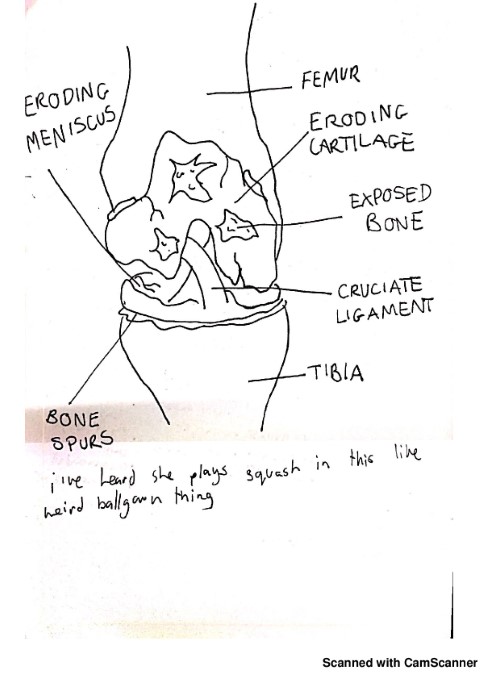 ERODING
MENISCUS
FEMUR
ERODING
CARTILAGE
EXPOSED
BONE
CRUCIATE
LIGAMENT
TIBIA
BONE
SPURS
i've heard she plays squash in this like
weird ballgown thing
Scanned with CamScanner